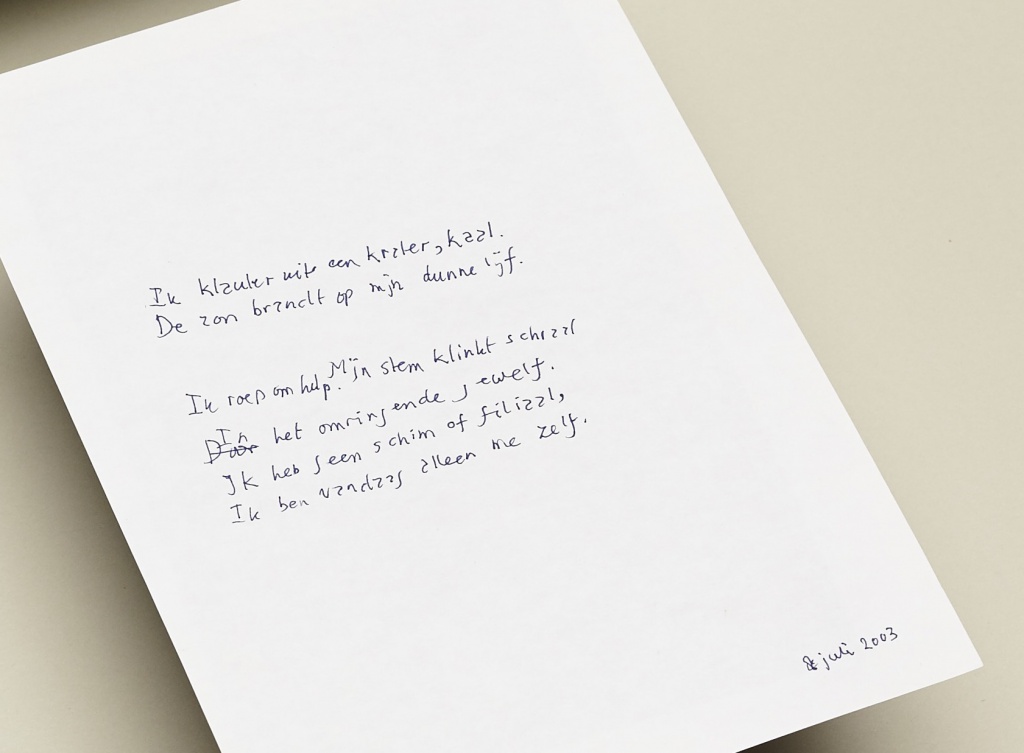 Ik klauter uit een krater, kaal.
De zon brandt op mijn dunne lijf.
Ik roep om hulp. Mijn stem klinkt schraal
In het omringende gewelf.
Ik heb geen schim of filiaal,
Ik ben vandaag alleen me zelf.
8 juli 2003